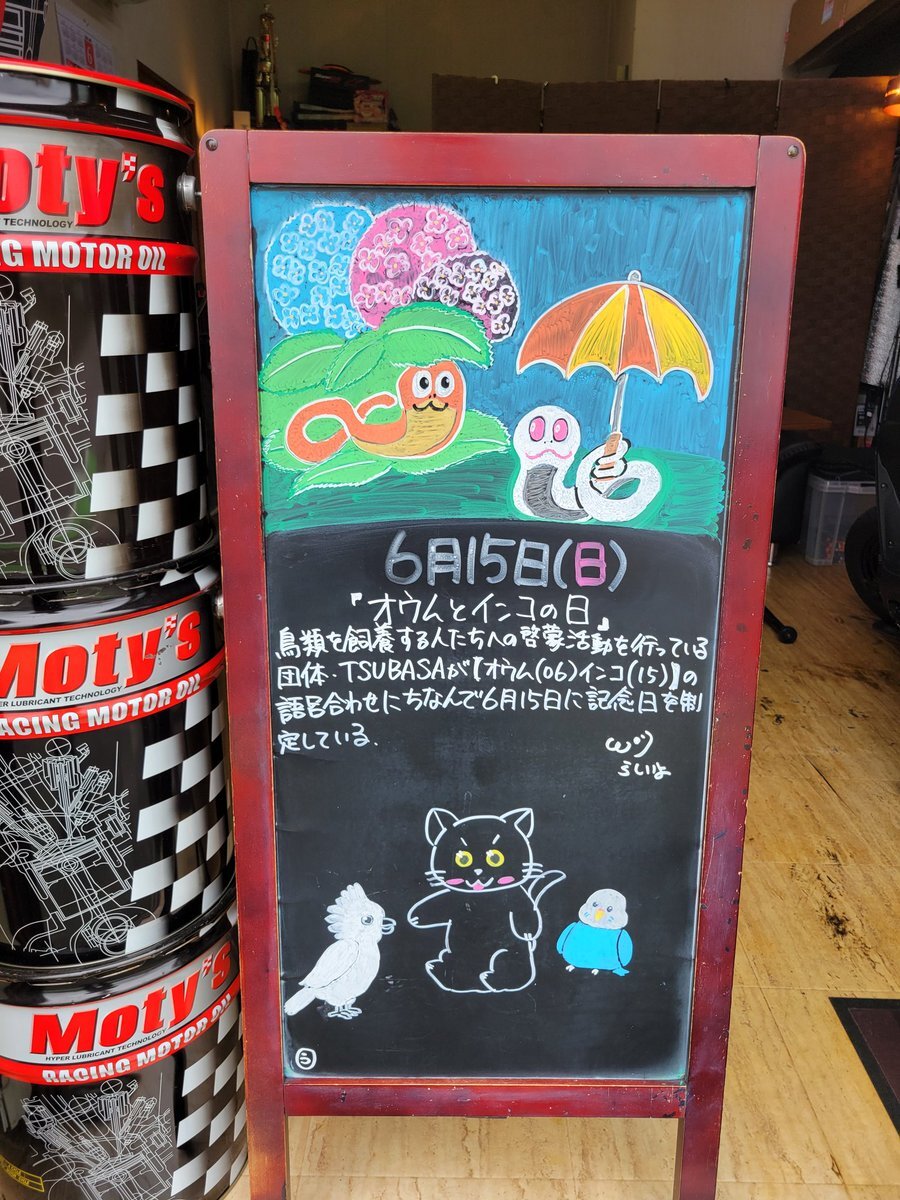 Moty's
TECHNOLOGY
NG MOTOR OIL
6月15日(日)
『オウムとインコの日』
鳥類を飼養する人たちへの啓蒙活動を行っている
団体・TSUBASAが【オウム(06)インコ(15)】の
語呂合わせにちなんで6月15日に記念日を制
定している.
らしいよ
う
Moty's
HYPER LUBRICANT TECHNOLOGY
RACING MOTOR OIL
Moty's
HYPER LUBRICANT TECHNOLOGY
RACING MOTOR OIL